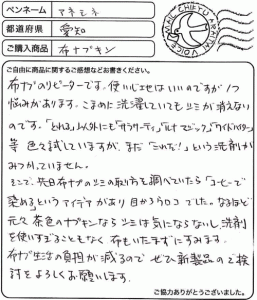 ペンネーム アキミネ
都道府県 愛知
ご購入商品 布ナプキン
MAIL CHIETU ARCHIRAL VOICE
ご自由に商品に関するご感想などお書きください。
布ナプのリピーターです。使い心地はいいのですが1つ
悩みがあります。こまめに洗濯していてもシミが消えない
のです。「とれる」以外にも「サラサーティ」「ルナマジック」「ワイドハイター」
等 色々試していますが、まだ「これだ!」という洗剤が
みつかっていません。
そこで、先日布ナプのシミの取り方を調べていたら「コーヒーで
染める」というアイデアがあり目からウロコでした。なるほど
元々 茶色のナプキンなら シミは気にならないし、洗剤
を使いすぎることもなく 布もいたまずにすみます。
布ナプ生活の負担が減るので ぜひ新製品のご検
討をよろしくお願いします。
ご協力ありがとうございました。